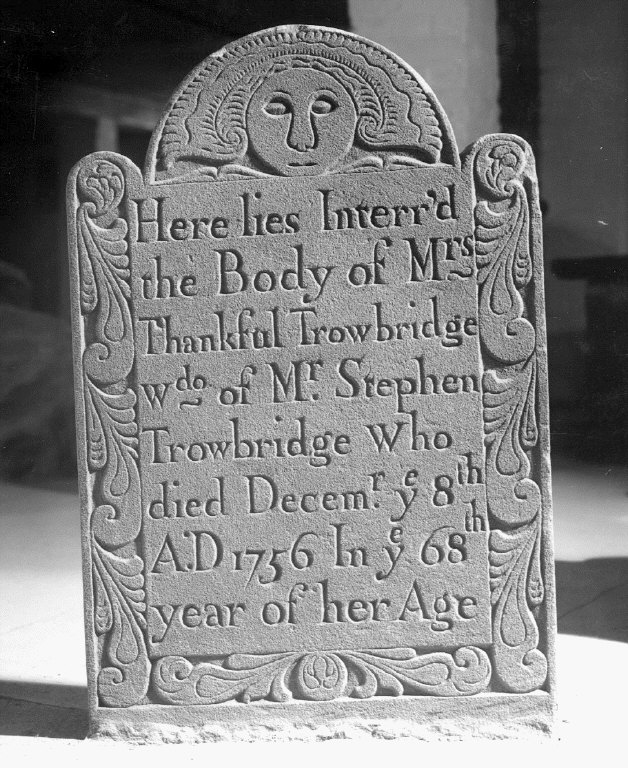 Here lies Interr'd
the Body of Mrs
Thankful Trowbridge
wdo. of Mr. Stephen
Trowbridge Who
died Decemr. ye 8th
A.D 1756 In ye 68th
year of her Age